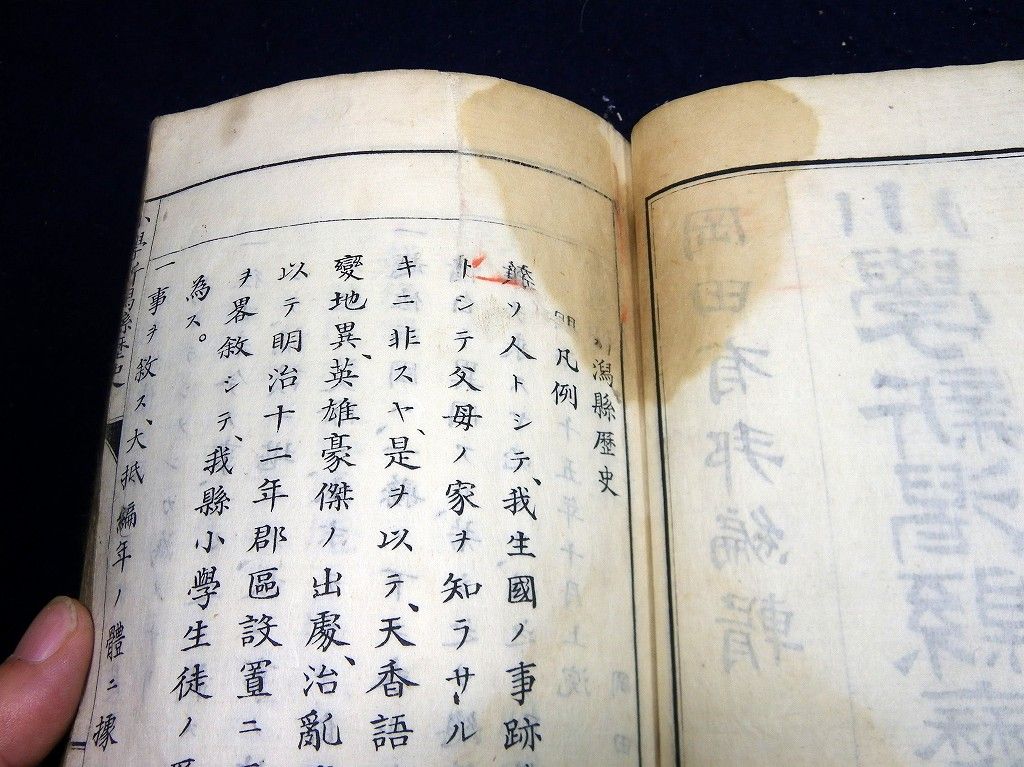 潟縣歴史
凡例
ソ人トシテ、我生國ノ事跡
トシテ父母ノ家ヲ知ラサル
キニ非スヤ、是ヲ以テ、天香語
變地異、英雄豪傑ノ出處、治亂
以テ明治十二年郡區設置ニ
ヲ畧敘シテ、我縣小學生徒ノ
為ス。
一事ヲ敘ス、大抵編年ノ體ニ據
縣歴史
岡田有邦編輯